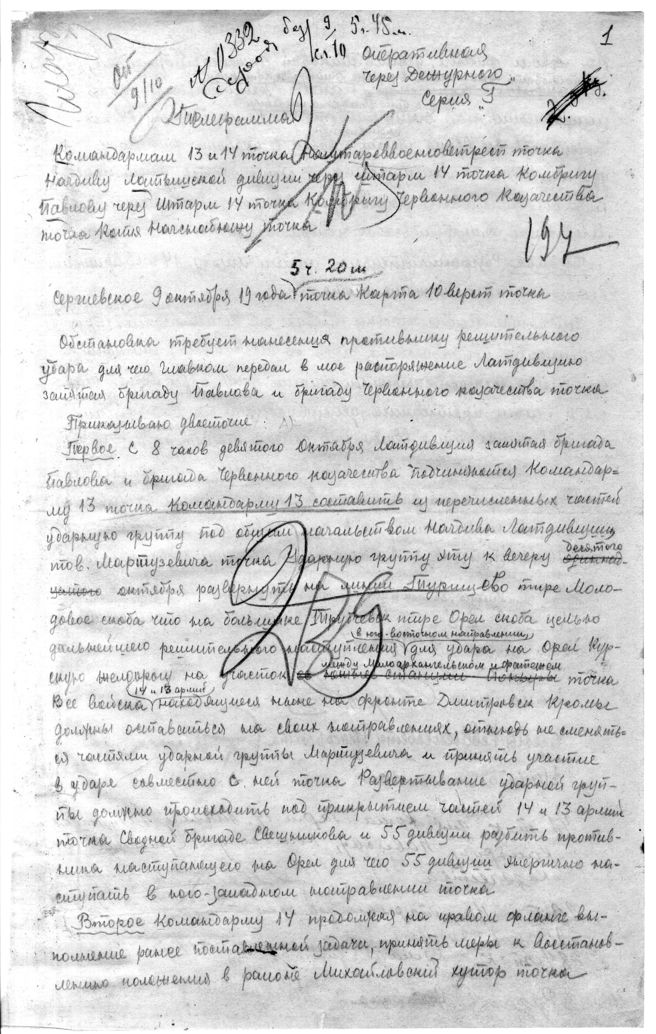 № 0332
без
9
5 г. 45 м.
кл. 10
Серия
9/10
1
Оперативная
Через Дежурного
Серия "Г"
Телеграмма
Командармам 13 и 14 точка точка
Начдиву Латышской дивизии через штарм 14 точка Комбригу
Павлову через Штарм 14 точка Комбригу Червонного Козачества
точка Копия Начснабюжу точка
197
5 ч. 20 м
Сергиевское 9 октября 19 года точка Карта 10 верст точка
Обстановка требует нанесения противнику решительного
удара для чего главком передал в мое распоряжение Латдивизию
запятая бригаду Павлова и бригаду Червонного козачества точка
Приказываю двоеточие
Первое С 8 часов девятого Октября Латдивизия запятая бригада
Павлова и бригада Червонного козачества подчиняются Командар=
му 13 точка Командарму 13 составить из перечисленных частей
ударную группу под общим начальством Начдива Латдивизии
тов. Мартузевича точка Ударную группу эту к вечеру десятого
октября развернуть на линии Турищево тире Моло-
довое скоба что на большаке Трубчевск тире Орел скоба целью
дальнейшего решительного наступления в юго-восточном направлении для удара на Орел Кур-
скую желдорогу на участок между Малоархангельском и Фатежем точка
Все войска 14 и 13 армий находящиеся ныне на фронте Дмитровск Кромы
должны оставаться на своих направлениях, отнюдь не сменять-
ся частями ударной группы Мартузевича и принять участие
в ударе совместно с ней точка Развертывание ударной груп-
пы должно происходить под прикрытием частей 14 и 13 армий
точка Сводной бригаде Свешникова и 55 дивизии разбить против-
ника наступающего на Орел для чего 55 дивизии энергично на-
ступать в юго-западном направлении точка
Второе Командарму 14 продолжая на правом фланге вы-
полнение ранее поставленной задачи, принять меры к восстанов-
лению положения в районе Михайловский хутор точка